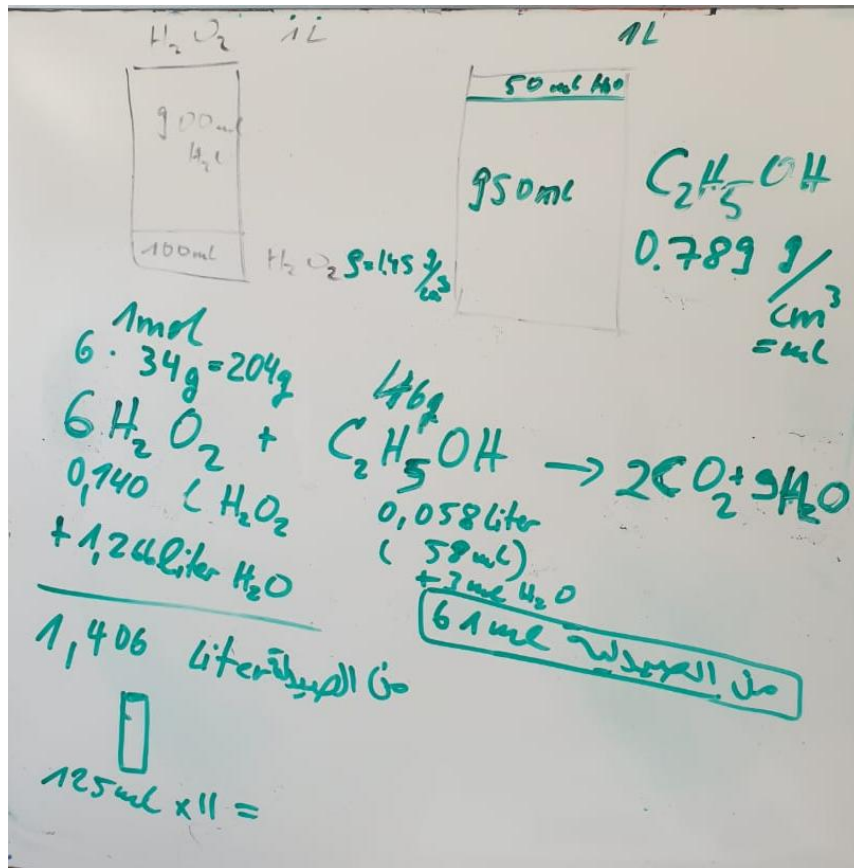 H₂O₂ 1L
900ml
H₂O
100ml
H₂O₂ ρ=1,45 g/cm³
1L
50 ml H₂O
950ml
C₂H₅OH
0.789 g/cm³
=ml
1mol
6 · 34g=204g
46g
6H₂O₂ + C₂H₅OH → 2CO₂+9H₂O
0,140 L H₂O₂
+1,266 liter H₂O
1,406 Liter من الصيدلية
0,058 liter
( 58ml)
+3ml H₂O
61ml من الصيدلية
125ml x11 =